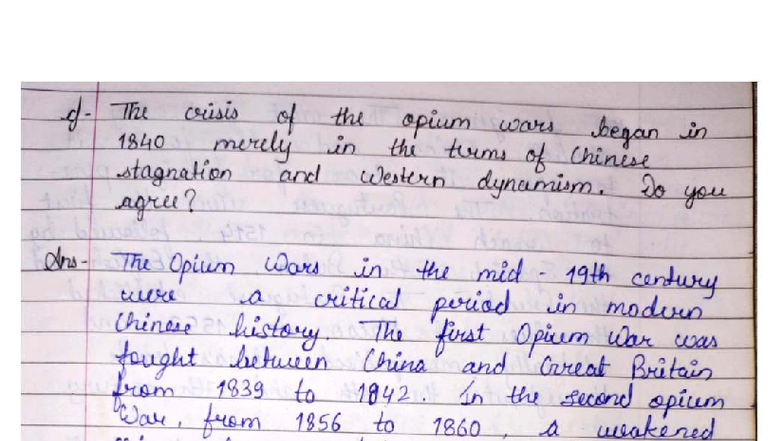 Q- The crisis of the opium wars began in
1840 merely in the terms of Chinese
stagnation and Western dynamism. Do you
agree?
Ans- The Opium Wars in the mid - 19th century
were a critical period in modern
Chinese history. The first Opium War was
fought between China and Great Britain
from 1839 to 1842. In the second opium
War, from 1856 to 1860, a weakened